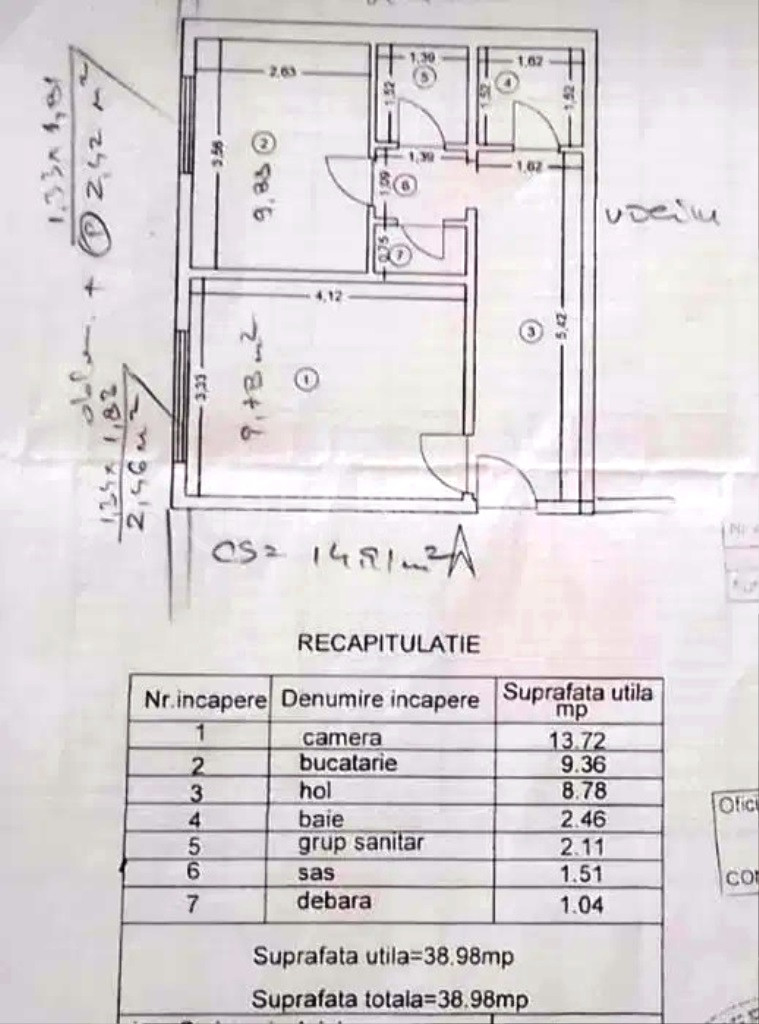 1,33 x 1,81
2,42 m²
+
1,34 x 1,83
2,46 m²
2,63
1,39
5
1,62
4
3,56
2
1,52
1,52
1,52
9,83
1,39
6
1,09
1,62
0,75
7
4,12
3
5,42
3,33
1
9,78 m²
RECAPITULATIE
Nr.incapere Denumire incapere Suprafata utila mp
1 camera 13.72
2 bucatarie 9.36
3 hol 8.78
4 baie 2.46
5 grup sanitar 2.11
6 sas 1.51
7 debara 1.04
Suprafata utila=38.98mp
Suprafata totala=38.98mp